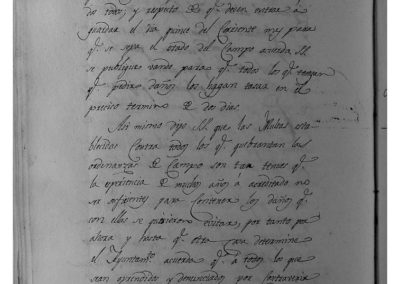 dos todos; y respecto de q.e deven entrar a
guardar el dia quince del Corriente mes para
q.e se sepa el estado del Campo acuerda S.S.
se publique vando para q.e todos los q.e tengan
q.e pedir daños los hagan tasar en el
preciso termino de dos dias.
Asi mismo dijo S.S. que las Multas esta
blecidas Contra todos los q.e quebrantan las
ordenanzas de Campo son tan leves q.e
la esperiencia de muchos años a acreditado no
ser suficientes para Contener los daños q.e
con ellas se pudieron evitar, por tanto por
ahora y hasta q.e otra cosa determine
el Ayuntam.to acuerda q.e a todos los que
sean aprendidos y denunciados por contravenir